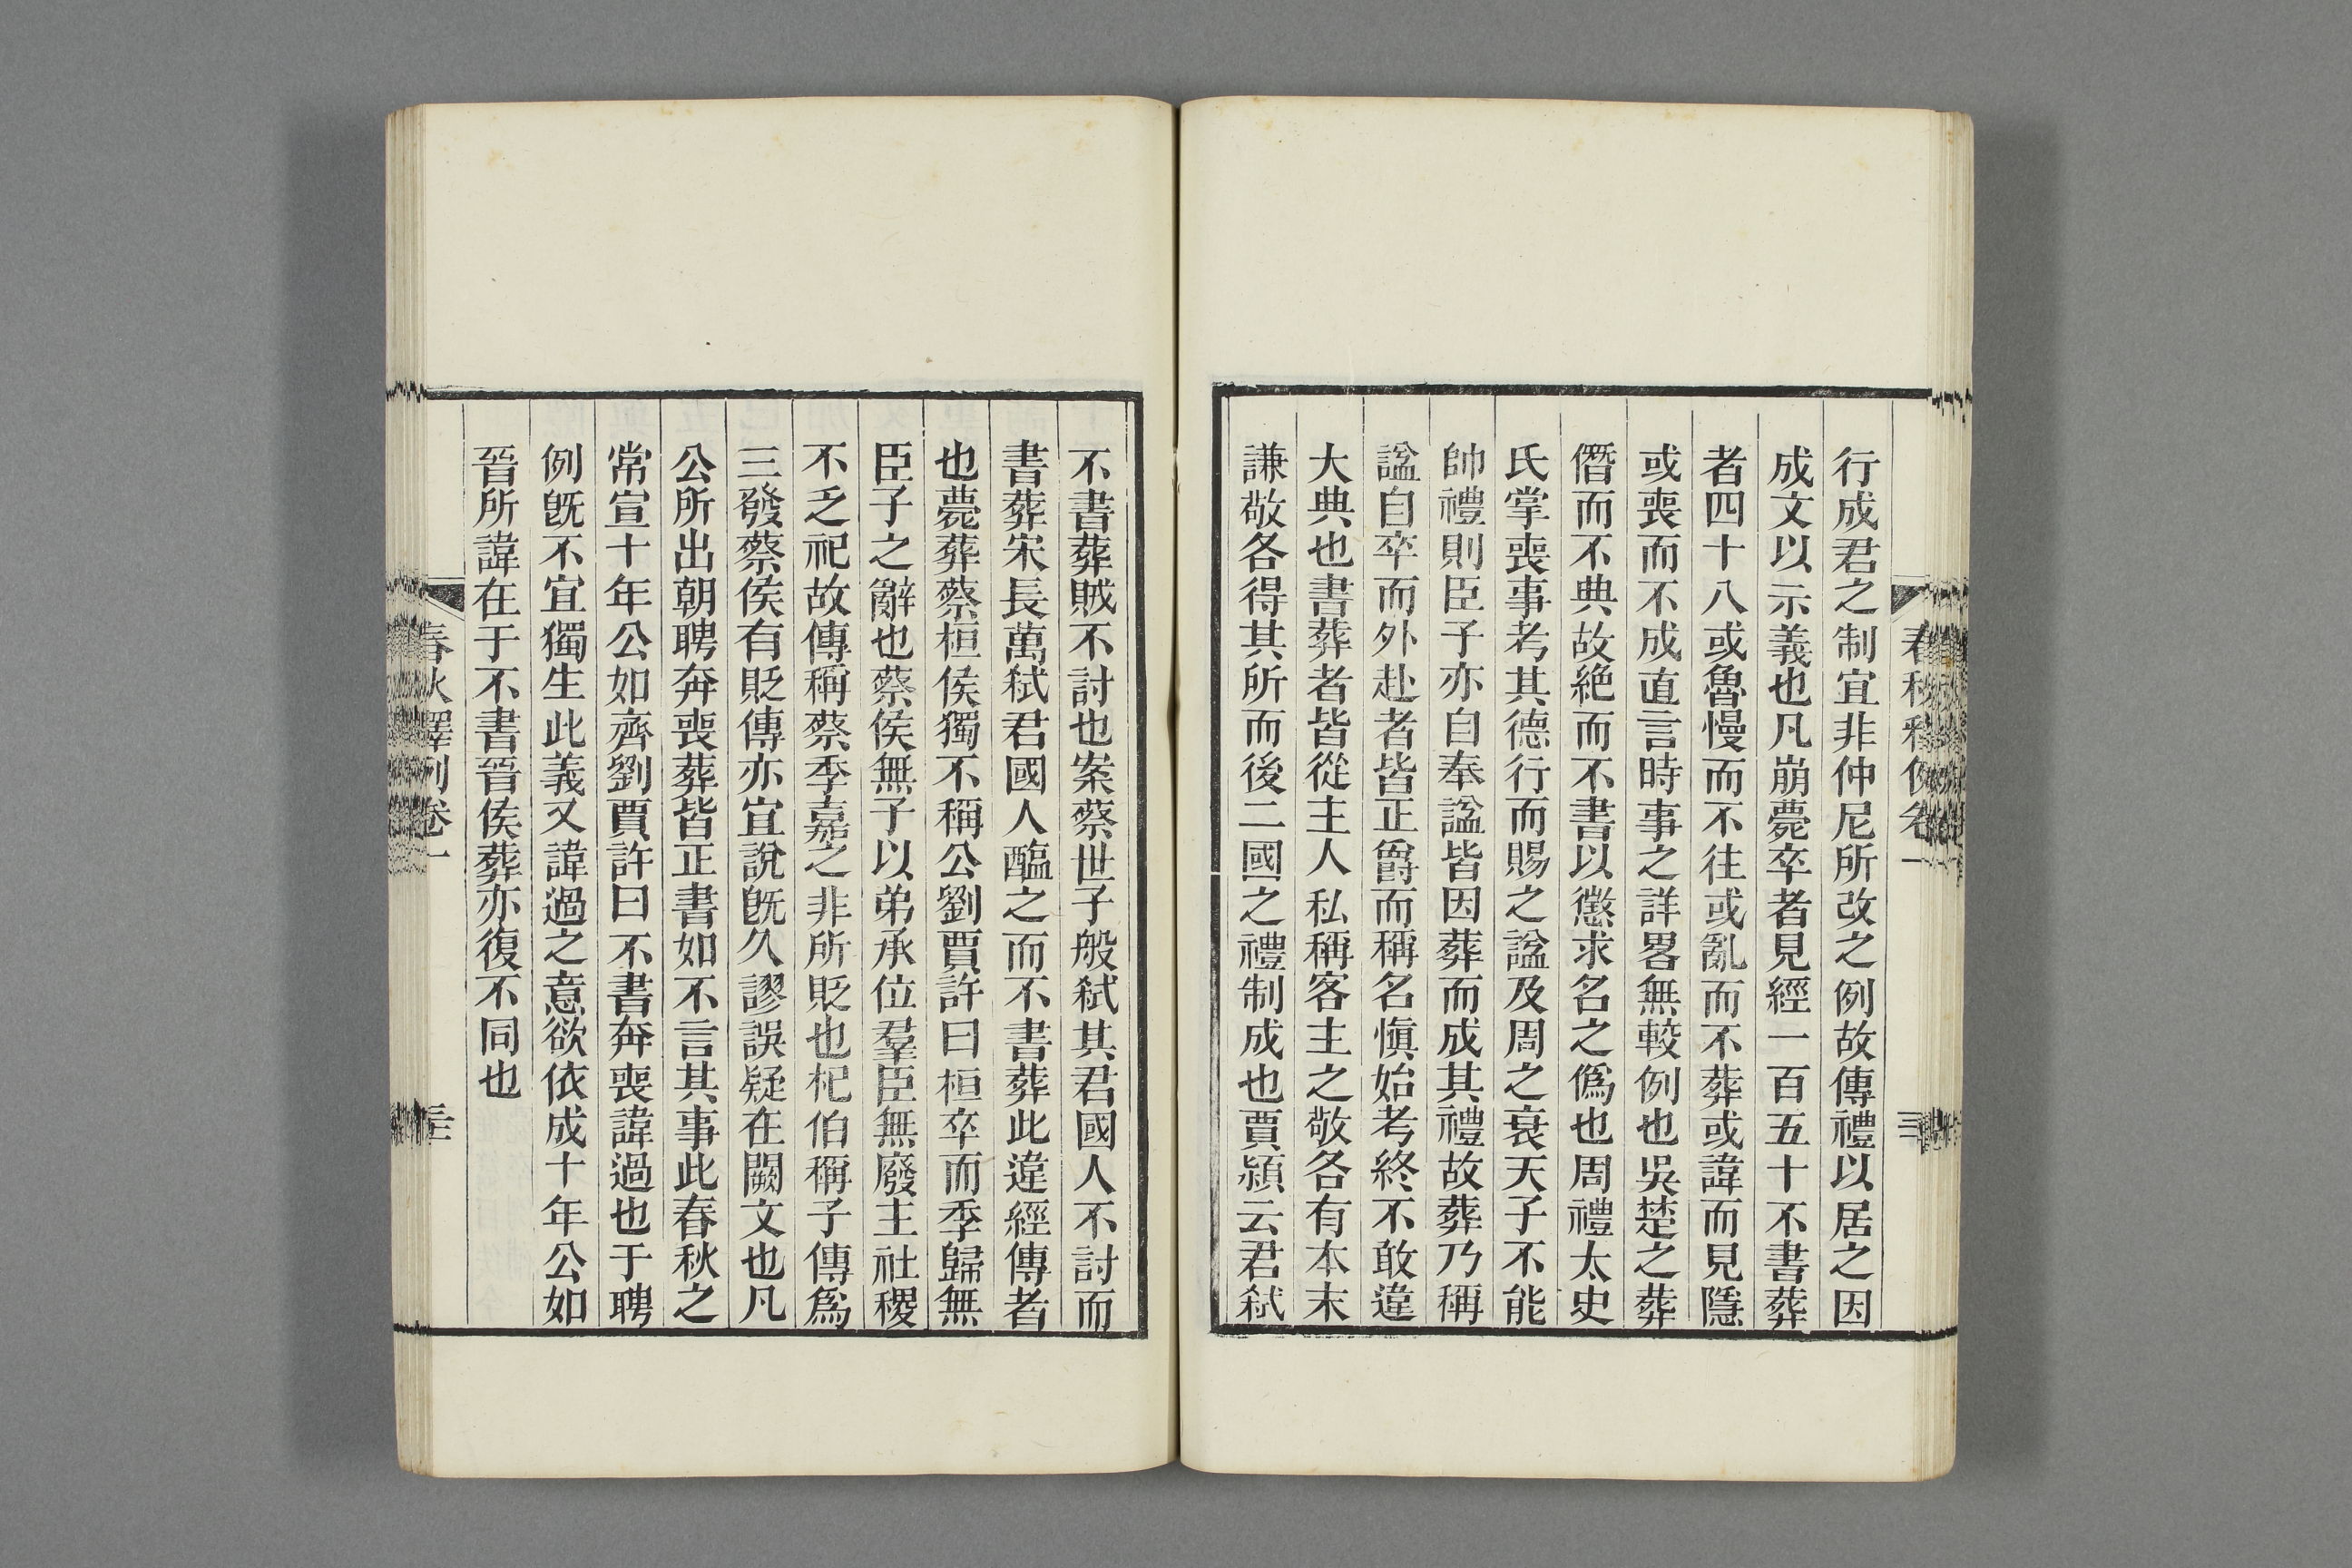 春秋釋例卷一
行成君之制宜非仲尼所改之例故傳禮以居之因
成文以示義也凡崩薨卒者見經一百五十不書葬
者四十八或魯慢而不往或亂而不葬或諱而見隱
或喪而不成直言時事之詳畧無較例也吳楚之葬
僭而不典故絶而不書以懲求名之僞也周禮太史
氏掌喪事考其德行而賜之諡及周之衰天子不能
帥禮則臣子亦自奉諡皆因葬而成其禮故葬乃稱
諡自卒而外赴者皆正爵而稱名愼始考終不敢違
大典也書葬者皆從主人私稱客主之敬各有本末
謙敬各得其所而後二國之禮制成也賈潁云君弑
不書葬賊不討也案蔡世子般弑其君國人不討而
書葬宋長萬弑君國人醢之而不書葬此違經傳者
也薨葬蔡桓侯獨不稱公劉賈許曰桓卒而季歸無
臣子之辭也蔡侯無子以弟承位羣臣無廢主社稷
不乏祀故傳稱蔡季嘉之非所貶也杞伯稱子傳爲
三發蔡侯有貶傳亦宜說旣久謬誤疑在闕文也凡
公所出朝聘奔喪葬皆正書如不言其事此春秋之
常宣十年公如齊劉賈許曰不書奔喪諱過也于聘
例旣不宜獨生此義又諱過之意欲依成十年公如
晉所諱在于不書晉侯葬亦復不同也
春秋釋例卷一